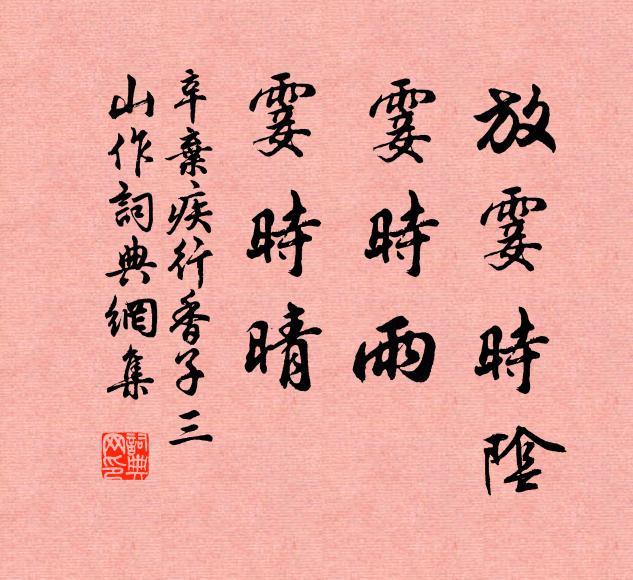 放霎時陰
霎時雨
霎時晴
辛棄疾行香子三
山作詞典網集
詞典网印